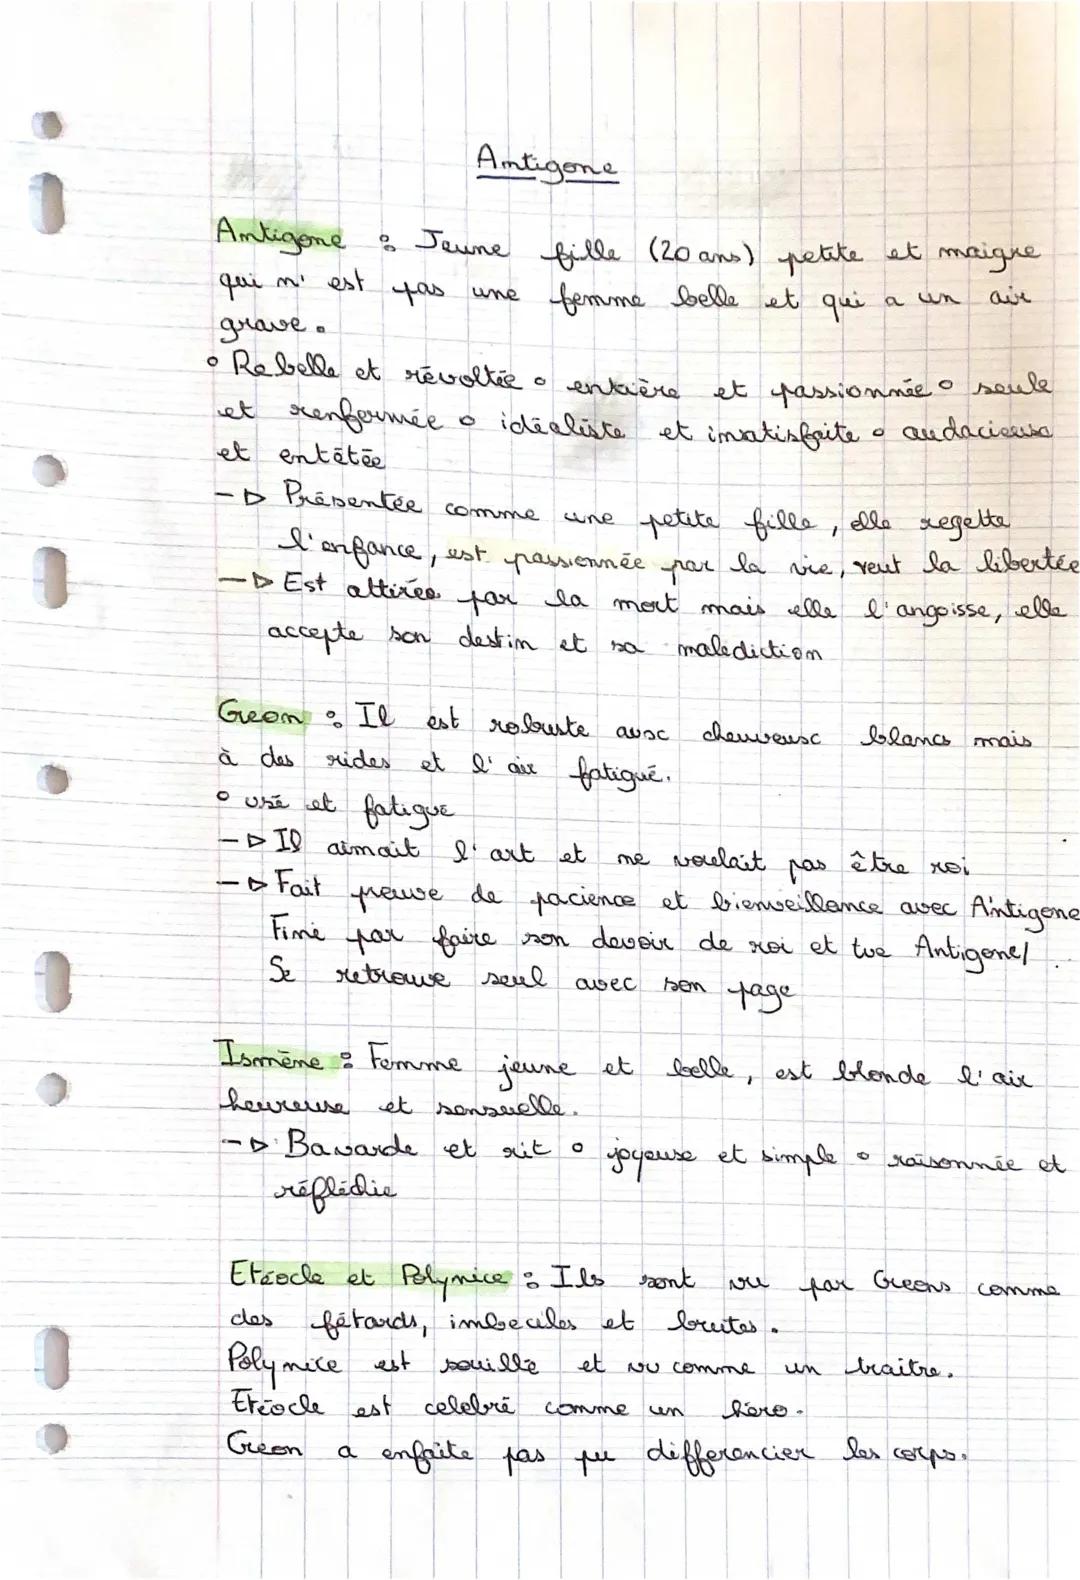 Antigone
Antigone : Jeune fille (20 ans) petite et maigre
qui n'est pas une femme belle et qui a un air
grave.
° Rebelle et révoltée ° entière et passionnée ° seule
et renfermée ° idéaliste et insatisfaite ° audacieuse
et entêtée
-> Présentée comme une petite fille, elle regette
l'enfance, est passionnée par la vie, veut la libertée
-> Est attirée par la mort mais elle l'angoisse, elle
accepte son destin et sa malediction
Creon : Il est robuste avec cheuveux blancs mais
à des rides et l'air fatigué.
° usé et fatigué
-> Il aimait l'art et ne voulait pas être roi
-> Fait preuve de pacience et bienveillance avec Antigone
Fini par faire son devoir de roi et tue Antigone/
Se retrouve seul avec son page
Ismène : Femme jeune et belle, est blonde l'air
heureuse et sensuelle.
-> Bavarde et rit ° joyeuse et simple ° raisonnée et
réflédie
Etéocle et Polynice : Ils sont vu par Creons comme
des fêtards, imbeciles et brutes.
Polynice est souillé et vu comme un traitre.
Etéocle est celebré comme un héro.
Creon a enfaite pas pu différencier les corps.